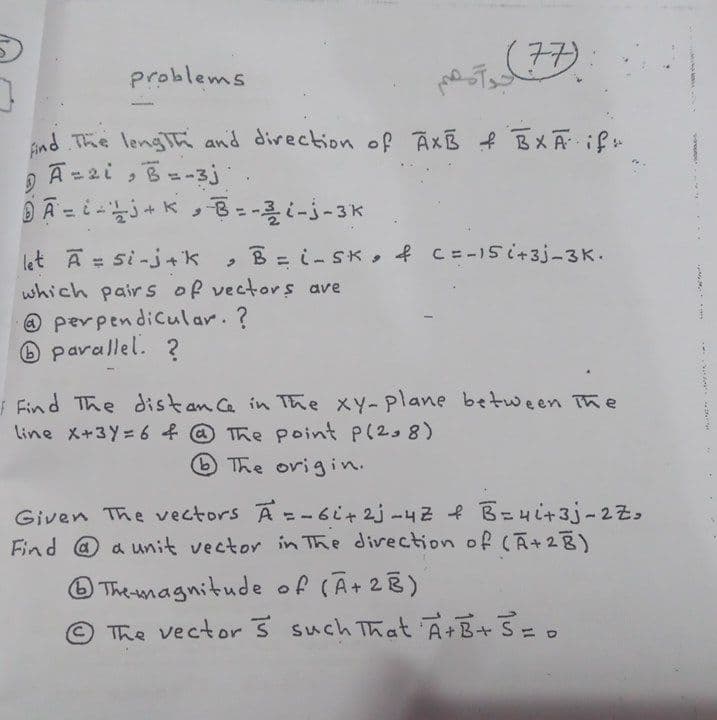 (77)
problems
Find The length and direction of A̅xB̅ & B̅xA̅ if:
ⓐ A̅=2i , B̅=-3j
ⓑ A̅=i-½j+K , B̅=-3/2 i-j-3K
let A̅=5i-j+K , B̅=i-5K, & C=-15i+3j-3K.
which pairs of vectors are
ⓐ perpendicular. ?
ⓑ parallel. ?
Find The distance in The xy-plane between The
line x+3y=6 & ⓐ The point p(2,8)
ⓑ The origin.
Given The vectors A⃗=-6i+2j-4Z & B̅=4i+3j-2Z,
Find ⓐ a unit vector in The direction of (A̅+2B̅)
ⓑ The magnitude of (A̅+2B̅)
ⓒ The vector S⃗ such That A⃗+B⃗+S⃗=0